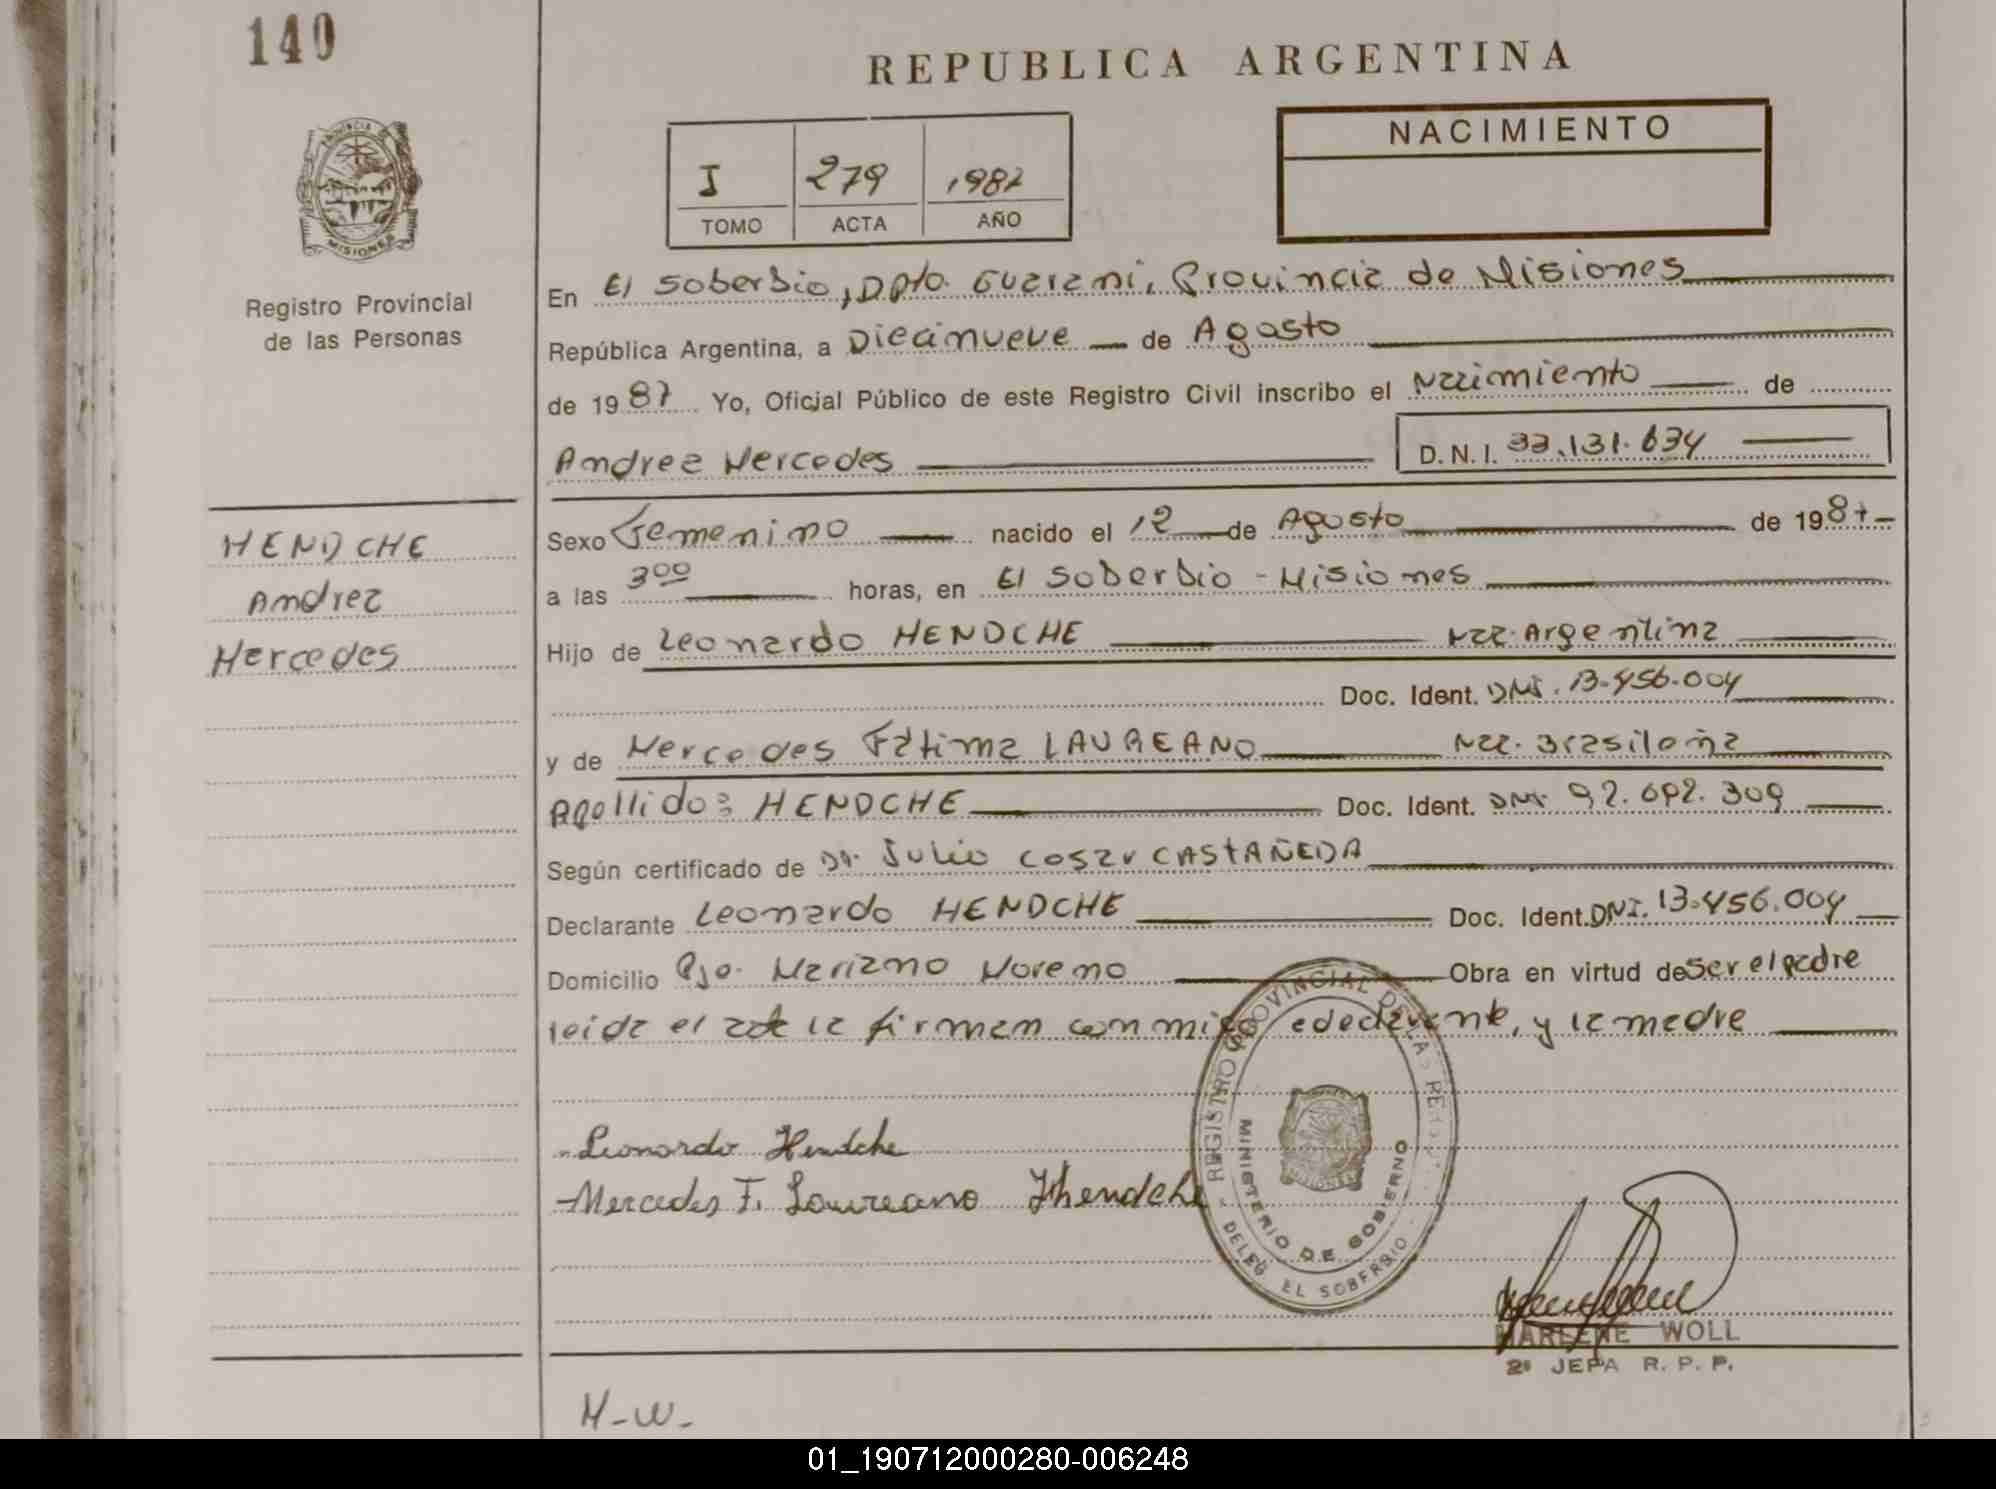 140
REPUBLICA ARGENTINA
PROVINCIA DE
MISIONES
Registro Provincial
de las Personas
I 279 1987
TOMO ACTA AÑO
NACIMIENTO
En El Soberbio, Dpto. Guarani, Provincia de Misiones
República Argentina, a Diecinueve de Agosto
de 1987 Yo, Oficial Público de este Registro Civil inscribo el Nacimiento de
Andrea Mercedes D.N.I. 33.131.634
HENDCHE
Andrea
Mercedes
Sexo Femenino nacido el 12 de Agosto de 1987-
a las 3°° horas, en El Soberbio - Misiones
Hijo de Leonardo HENDCHE Nac. Argentina
Doc. Ident. DNI. 13.456.004
y de Mercedes Fátima LAUREANO Nac. Brasileña
Apellido: HENDCHE Doc. Ident. DNI. 92.692.309
Según certificado de Dr. Julio Cesar CASTAÑEDA
Declarante Leonardo HENDCHE Doc. Ident. DNI. 13.456.004
Domicilio Pje. Mariano Moreno Obra en virtud de ser el padre
leida el acta la firman conmigo el declarante, y la madre
- Leonardo Hendche
- Mercedes F. Laureano Hendche
REGISTRO PROVINCIAL DE LAS
MINISTERIO DE GOBIERNO
DELEG. EL SOBERBIO
MARLENE WOLL
2ª JEFA R.P.P.
M-W-
01_190712000280-006248